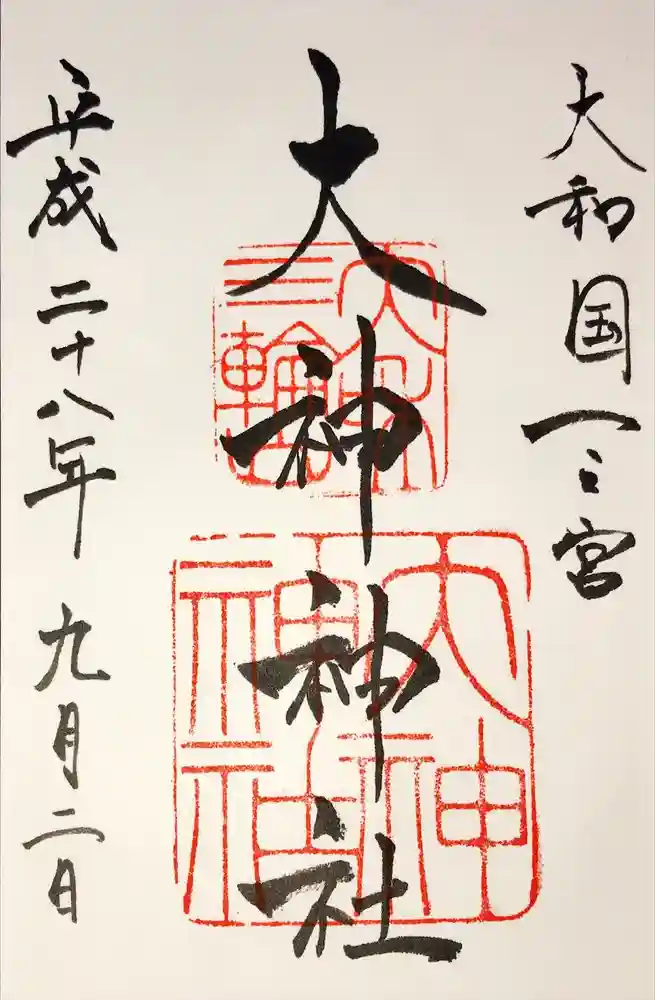 大和国一之宮
大神神社
平成二十八年九月二日
三輪